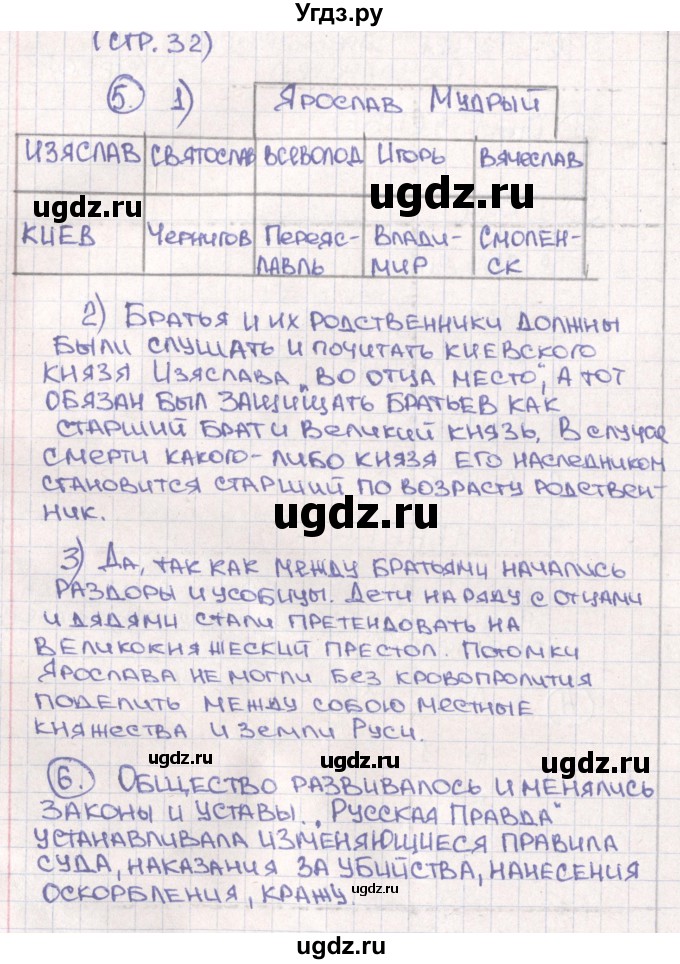 Угдз.ру
(стр. 32)
5. 1) Ярослав Мудрый
Изяслав Святослав Всеволод Игорь Вячеслав
ugdz.ru ugdz.ru
Киев Чернигов Переяс- Влади- Смолен-
лавль мир ск
2) Братья и их родственники должны
были слушать и почитать киевского
князя Изяслава „во отца место“, а тот
обязан был защищать братьев как
старший брат и великий князь. В случае
смерти какого-либо князя его наследником
становится старший по возрасту родствен-
ник.
ugdz.ru
3) Да, так как между братьями начались
раздоры и усобицы. Дети наряду с отцами
и дядями стали претендовать на
великокняжеский престол. Потомки
Ярослава не могли без кровопролития
поделить между собою местные
княжества и земли Руси.
ugdz.ru ugdz.ru
6. Общество развивалось и менялись
законы и уставы. „Русская правда“
устанавливала изменяющиеся правила
суда, наказания за убийства, нанесения
оскорбления, кражу.
ugdz.ru
ugdz.ru